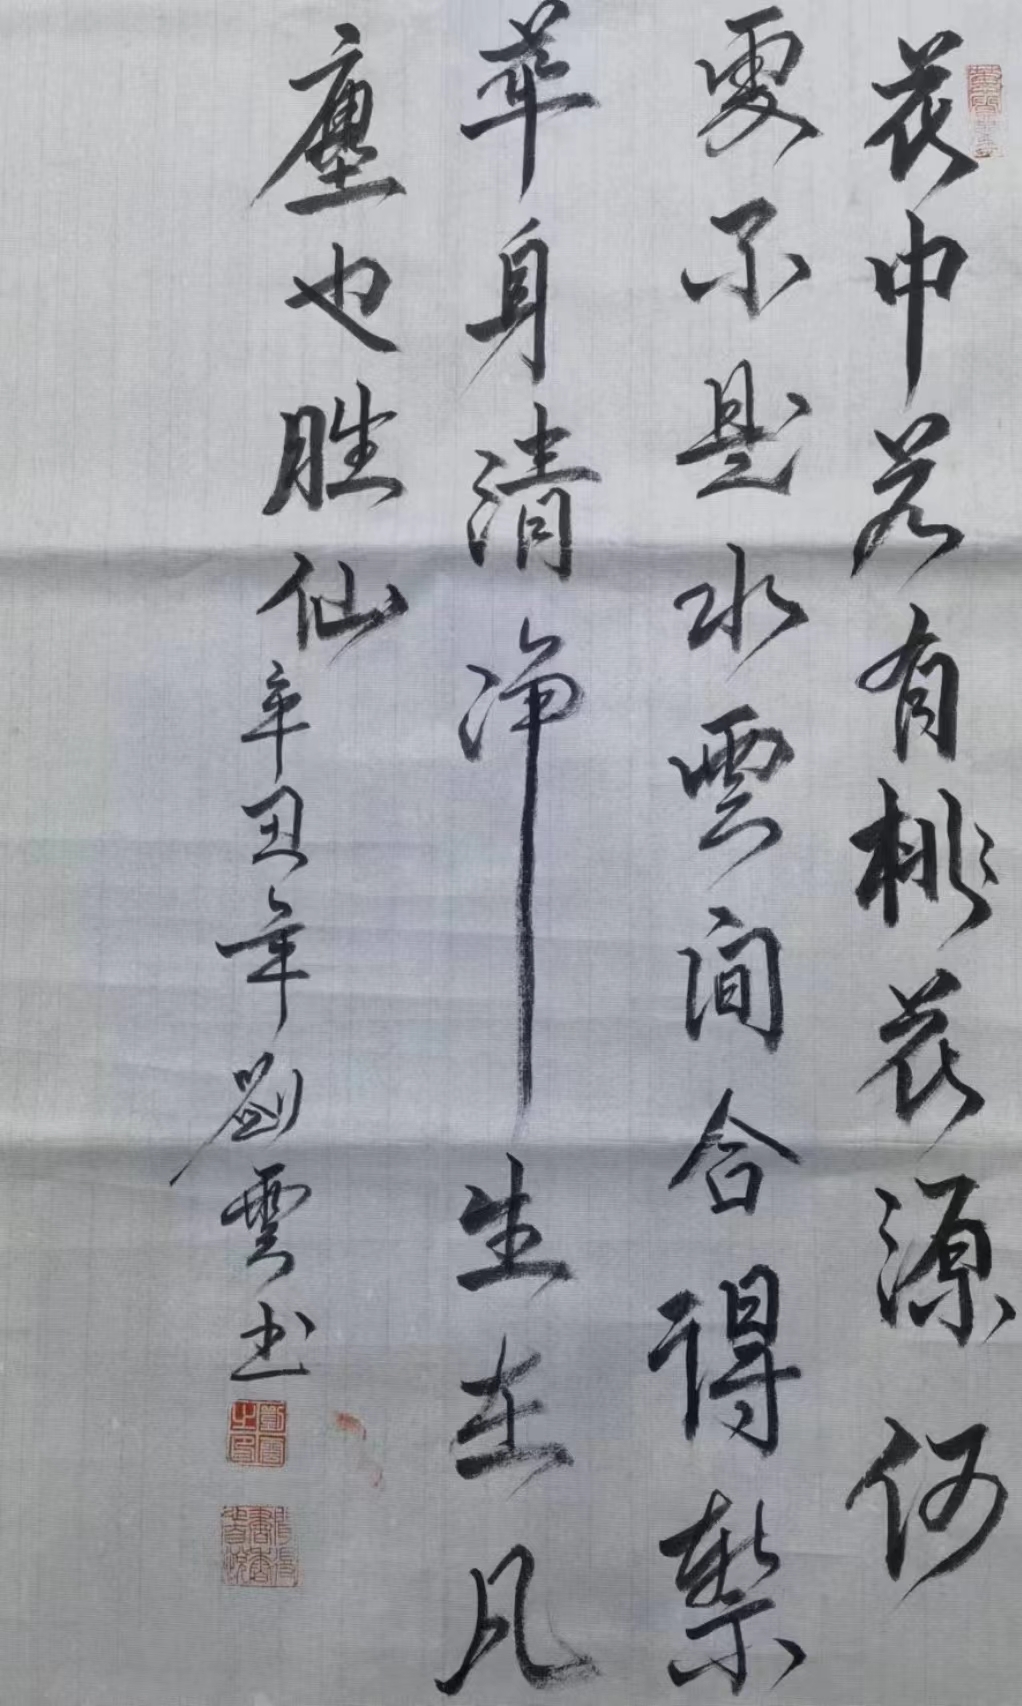 花中若有桃花源何
處不是水雲间舍得繁
華身清净生在凡
塵也胜仙
辛丑年劉雲书